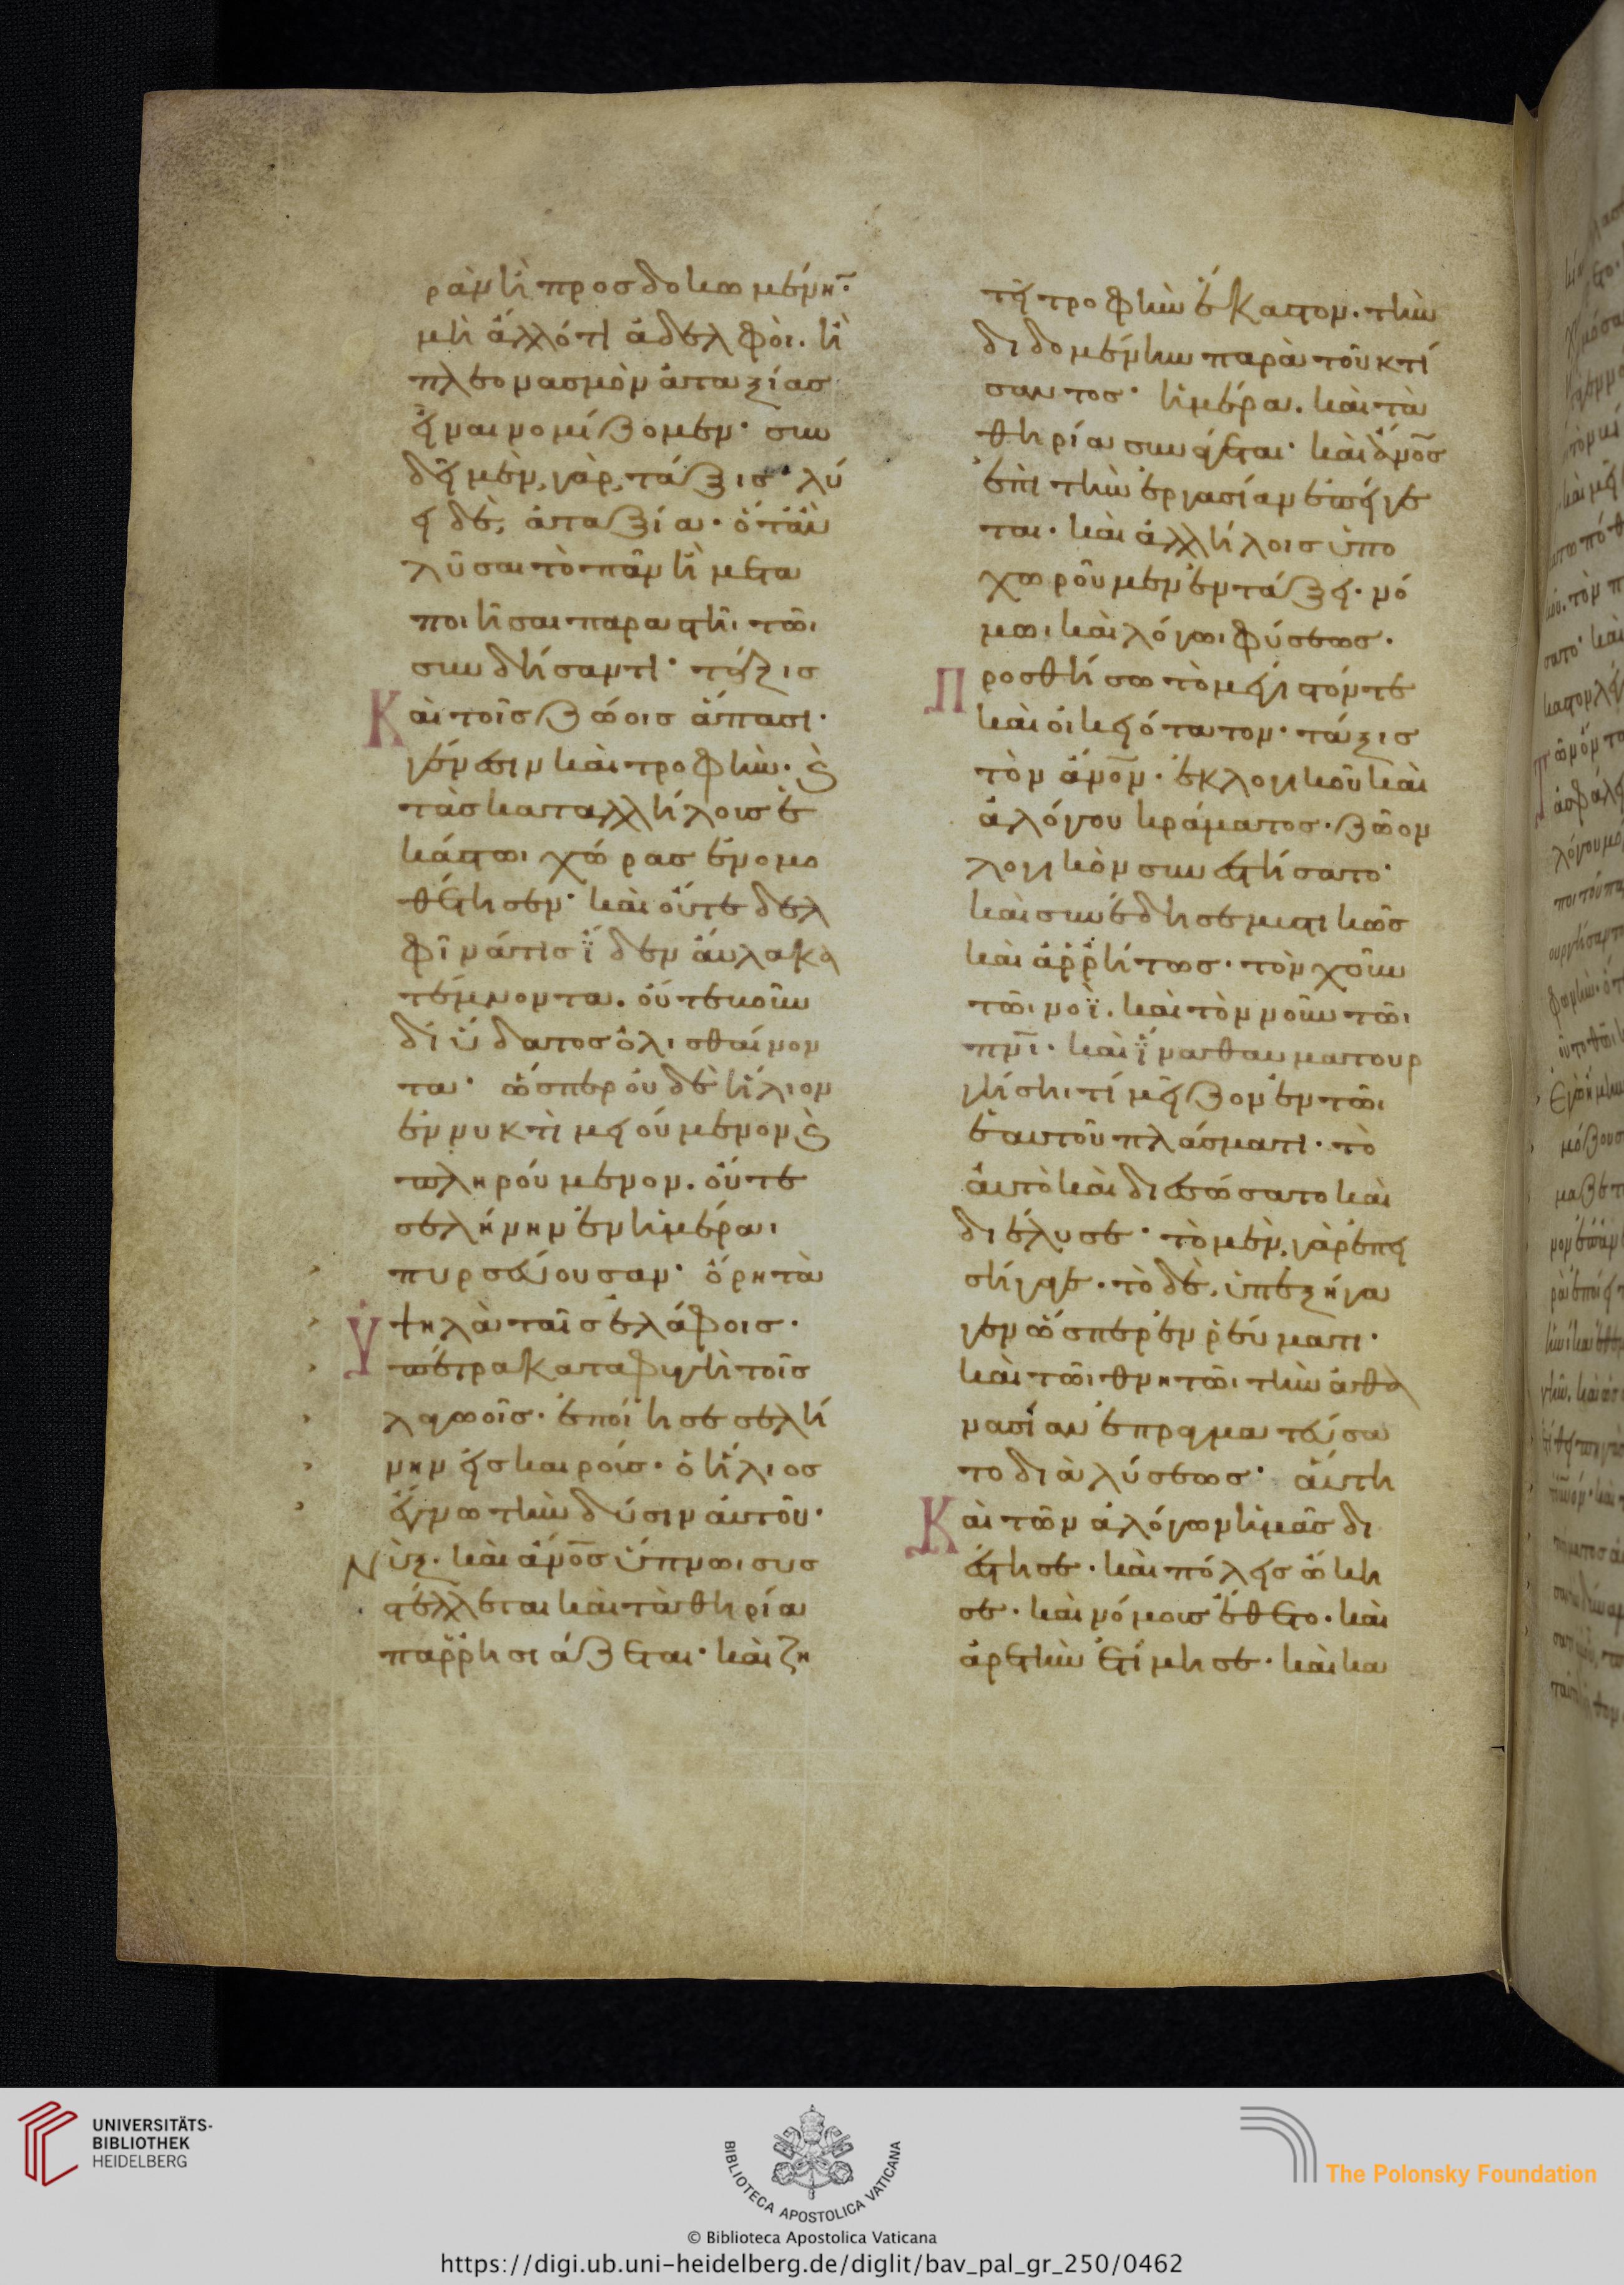 ρὰν ἢ προσδοκωμένη·
μὴ ἄλλό τι ἀδελφοὶ. ἢ
πλεονασμὸν ἀταξίας
εἶναι νομίζομεν· συν
δεῖ μὲν, γὰρ, τάξις· λύ
ει δὲ, ἀταξία· ὅτἂν
λῦσαι τὸ πᾶν ἢ μετα
ποιῆσαι παραστῆι τῶι
συνδήσαντι· τάξις
Καὶ τοῖς ζώοις ἅπασι·
γένεσιν καὶ τροφὴν· καὶ
τὰς καταλλήλοις ἑ
κάστωι χώρας ἐνομο
θέτησεν· καὶ οὔτε δελ
φῖνά τις ἴδεν αὔλακα
τέμνοντα. οὔτε βοῦν
δι ὕδατος ὀλισθαίνον
τα· ὥσπερ οὐδὲ ἥλιον
ἐν νυκτὶ μειούμενον καὶ
πληρούμενον. οὔτε
σελήνην ἐν ἡμέραι
πυρσεύουσαν· ὄρη τὰ
Ὑψηλὰ ταῖς ἐλάφοις·
πέτρα καταφυγὴ τοῖς
λαγωοῖς· ἐποίησε σελή
νην εἰς καιρούς· ὁ ἥλιος
ἔγνω τὴν δύσιν αὐτοῦ·
Νὺξ· καὶ ἄνος ὕπνωι συσ
τέλλεται καὶ τὰ θηρία
παρρησιάζεται· καὶ ζη
τεῖ τροφὴν ἕκαστον· τὴν
διδομένην παρὰ τοῦ κτί
σαντος· ἡμέρα. καὶ τὰ
θηρία συνάγεται· καὶ ὁ ἄνος
ἐπὶ τὴν ἐργασίαν ἐπείγε
ται· καὶ ἀλλήλοις ὑπο
χωροῦμεν ἐν τάξει· νό
μωι καὶ λόγωι φύσεως·
Προσθήσω τὸ μέγιστόν τε
καὶ οἰκειότατον· τάξις
τὸν ἄνον· ἐκ λογικοῦ καὶ
ἀλόγου κράματος· ζῶον
λογικὸν συνεστήσατο·
καὶ συνέδησε μυστικῶς
καὶ ἀρρήτως· τὸν χοῦν
τῶι νοῒ. καὶ τὸν νοῦν τῶι
πνι· καὶ ἵνα θαυματουρ
γήσηι τί μεῖζον ἐν τῶι
ἑαυτοῦ πλάσματι· τὸ
αὐτὸ καὶ διεσώσατο καὶ
διέλυσε· τὸ μὲν, γὰρ ἐπει
σήγαγε· τὸ δὲ, ὑπεξήγα
γεν ὥσπερ ἐν ῥεύματι·
καὶ τῶι θνητῶι τὴν ἀθα
νασίαν ἐπραγματεύσα
το διὰ λύσεως· αὕτη
Καὶ τῶν ἀλόγων ἡμᾶς δι
έστησε· καὶ πόλεις ὤικη
σε· καὶ νόμοις ἔθετο· καὶ
ἀρετὴν ἐτίμησε· καὶ κα
UNIVERSITÄTS-
BIBLIOTHEK
HEIDELBERG
BIBLIOTECA APOSTOLICA VATICANA
The Polonsky Foundation
© Biblioteca Apostolica Vaticana
https://digi.ub.uni-heidelberg.de/diglit/bav_pal_gr_250/0462